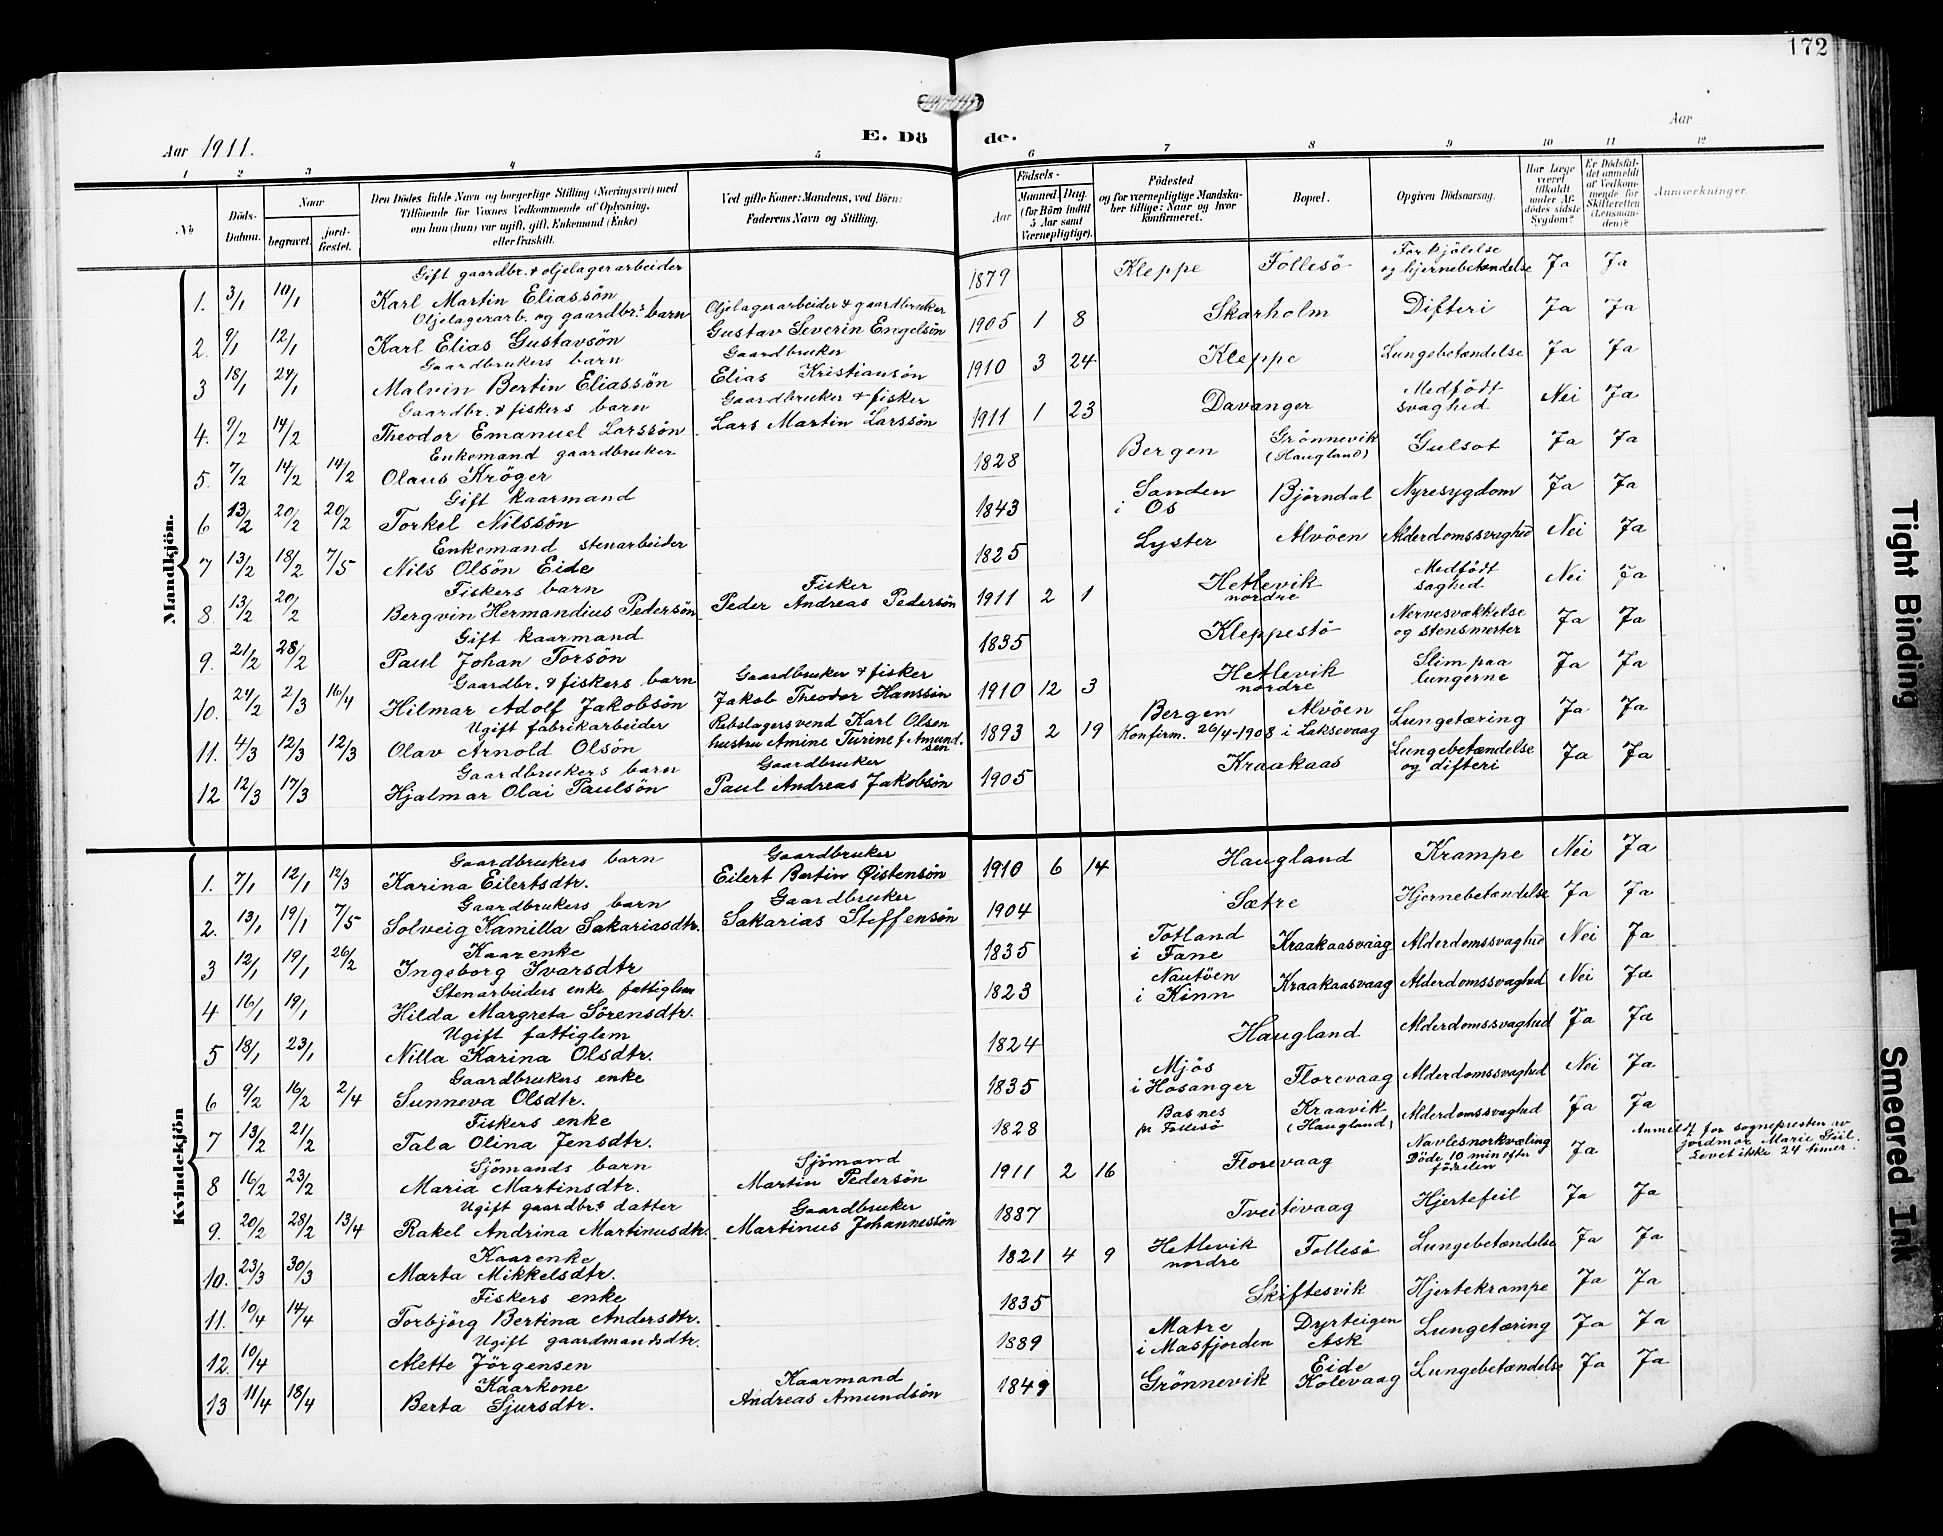 172
Aar 1911.
E. Dö de.
Aar
1 2 3 4 5 6 7 8 9 10 11 12
No
Döds-Datum.
Naar
begravet.
jord-fæstet.
Den Dödes fulde Navn og borgerlige Stilling (Næringsvei) med
Tilföiende for Voxnes Vedkommende af Oplysning,
om han (hun) var ugift, gift, Enkemand (Enke)
eller fraskilt.
Ved gifte Koner: Mandens, ved Börn:
Faderens Navn og Stilling.
Födsels-
Aar
Maaned. Dag.
(for Börn indtil 5 Aar samt Værnepligtige).
Födested
og for værnepligtige Mandska-
ber tillige: Naar og hvor
konfirmeret.
Bopæl.
Opgiven Dödsaarsag.
Har Læge været tilkaldt under Af-dödes sidste Sygdom?
Er Dödsfal-det anmeldt af Vedkom-mende for Skifteretten (Lensman-den)?
Anmærkninger.
Mandkjön.
Gift gaardbr. & oljelagerarbeider
1. 3/1 10/1 Karl Martin Eliassön 1879 Kleppe Follesö Forkjölelse og hjernebetændelse Ja Ja
Oljelagerarb. og gaardbr.s barn Oljelagerarbeider & gaardbruker
2. 9/1 12/1 Karl Elias Gustavsön Gustav Severin Engelsön 1905 1 8 Skarholm Difteri Ja Ja
Gaardbrukers barn Gaardbruker
3 18/1 24/1 Malvin Bertin Eliassön Elias Kristiansön 1910 3 24 Kleppe Lungebetændelse Ja Ja
Gaardbr. & fiskers barn Gaardbruker & fisker
4. 9/2 14/2 Theodor Emanuel Larssön Lars Martin Larssön 1911 1 23 Davanger Medfödt svaghed Nei Ja
Enkemand gaardbruker
5. 7/2 14/2 14/2 Olaus Kröger 1828 Bergen Grönnevik (Haugland) Gulsot Ja Ja
Gift kaarmand
6 13/2 20/2 20/2 Torkel Nilssön 1843 Sanden i Os Björndal Nyresygdom Ja Ja
Enkemand stenarbeider
7 13/2 18/2 7/5 Nils Olsön Eide 1825 Lyster Alvöen Alderdomssvaghed Nei Ja
Fiskers barn Fisker
8. 13/2 20/2 Bergvin Hermandius Pedersön Peder Andreas Pedersön 1911 2 1 Hetlevik nordre Medfödt saghed. Nei Ja
Gift kaarmand
9. 21/2 28/2 Paul Johan Torsön 1835 Kleppestö Nervesvækkelse og stensmerter Ja Ja
Gaardbr. & fiskers barn Gaardbruker & fisker
10. 24/2 2/3 16/4 Hilmar Adolf Jakobsön Jakob Theodor Hanssön 1910 12 3 Hetlevik nordre Slim paa lungerne Ja Ja
Ugift fabrikarbeider Rebslagersvend Karl Olsen
11. 4/3 12/3 12/3 Olav Arnold Olsön hustru Amine Turine f. Amundsen 1893 2 19 Bergen Konfirm. 26/4-1908 i Laksevaag Alvöen Lungetæring Ja Ja
Gaardbrukers barn Gaardbruker
12 12/3 17/3 Hjalmar Olai Paulsön Paul Andreas Jakobsön 1905 Kraakaas Lungebetændelse og difteri Ja Ja
Kvindekjön
Gaardbrukers barn Gaardbruker
1. 7/1 12/1 12/3 Karina Eilertsdtr. Eilert Bertin Øistensön 1910 6 14 Haugland Krampe Nei Ja
Gaardbrukers barn Gaardbruker
2. 13/1 19/1 7/5 Solveig Kamilla Sakariasdtr. Sakarias Steffensön 1904 Sætre Hjernebetændelse Ja Ja
Kaarenke
3 12/1 19/1 26/2 Ingeborg Ivarsdtr 1835 Totland i Fane Kraakaasvaag Alderdomssvaghed Nei Ja
Stenarbeiders enke fattiglem
4 16/1 19/1 Hilda Margreta Sörensdtr. 1823 Nautöen i Kinn Kraakaasvaag Alderdomssvaghed Nei Ja
Ugift fattiglem
5 18/1 23/1 Nilla Karina Olsdtr. 1824 Haugland Alderdomssvaghed Ja Ja
Gaardbrukers enke
6 9/2 16/2 2/4 Sunneva Olsdtr. 1835 Mjös i Hosanger Florevaag Alderdomssvaghed Nei Ja
Fiskers enke
7 13/2 21/2 Tala Olina Jensdtr. 1828 Basnes pr Follesö Kraavik (Haugland) Alderdomssvaghed Ja Ja
Sjömands barn Sjömand
8 16/2 23/2 Maria Martinsdtr. Martin Pedersön 1911 2 16 Florevaag Navlesnorkvæling Döde 10 min efter födselen Ja Anmeldt for sognepresten av jordmor Marie Giil. Levet ikke 24 timer.
Ugift gaardbr.s datter Gaardbruker
9. 20/2 28/2 13/4 Rakel Andrina Martinusdtr. Martinus Johannessön 1887 Tveitevaag Hjertefeil Ja Ja
Kaarenke
10. 23/3 30/3 Marta Mikkelsdtr. 1821 4 9 Hetlevik nordre Follesö Lungebetændelse Ja Ja
Fiskers enke
11. 10/4 14/4 Torbjörg Bertina Andersdtr. 1835 Skiftesvik Hjertekrampe Ja Ja
Ugift gaardmandsdtr.
12. 10/4 Mette Jörgensen 1889 Matre i Masfjorden Dyrteigen Ask Lungetæring Ja Ja
Kaarkone Kaarmand
13 11/4 18/4 Berta Sjursdtr. Andreas Amundsön 1849 Grönnevik Eide Kolevaag Lungebetændelse Ja Ja
Tight Binding
Smeared Ink